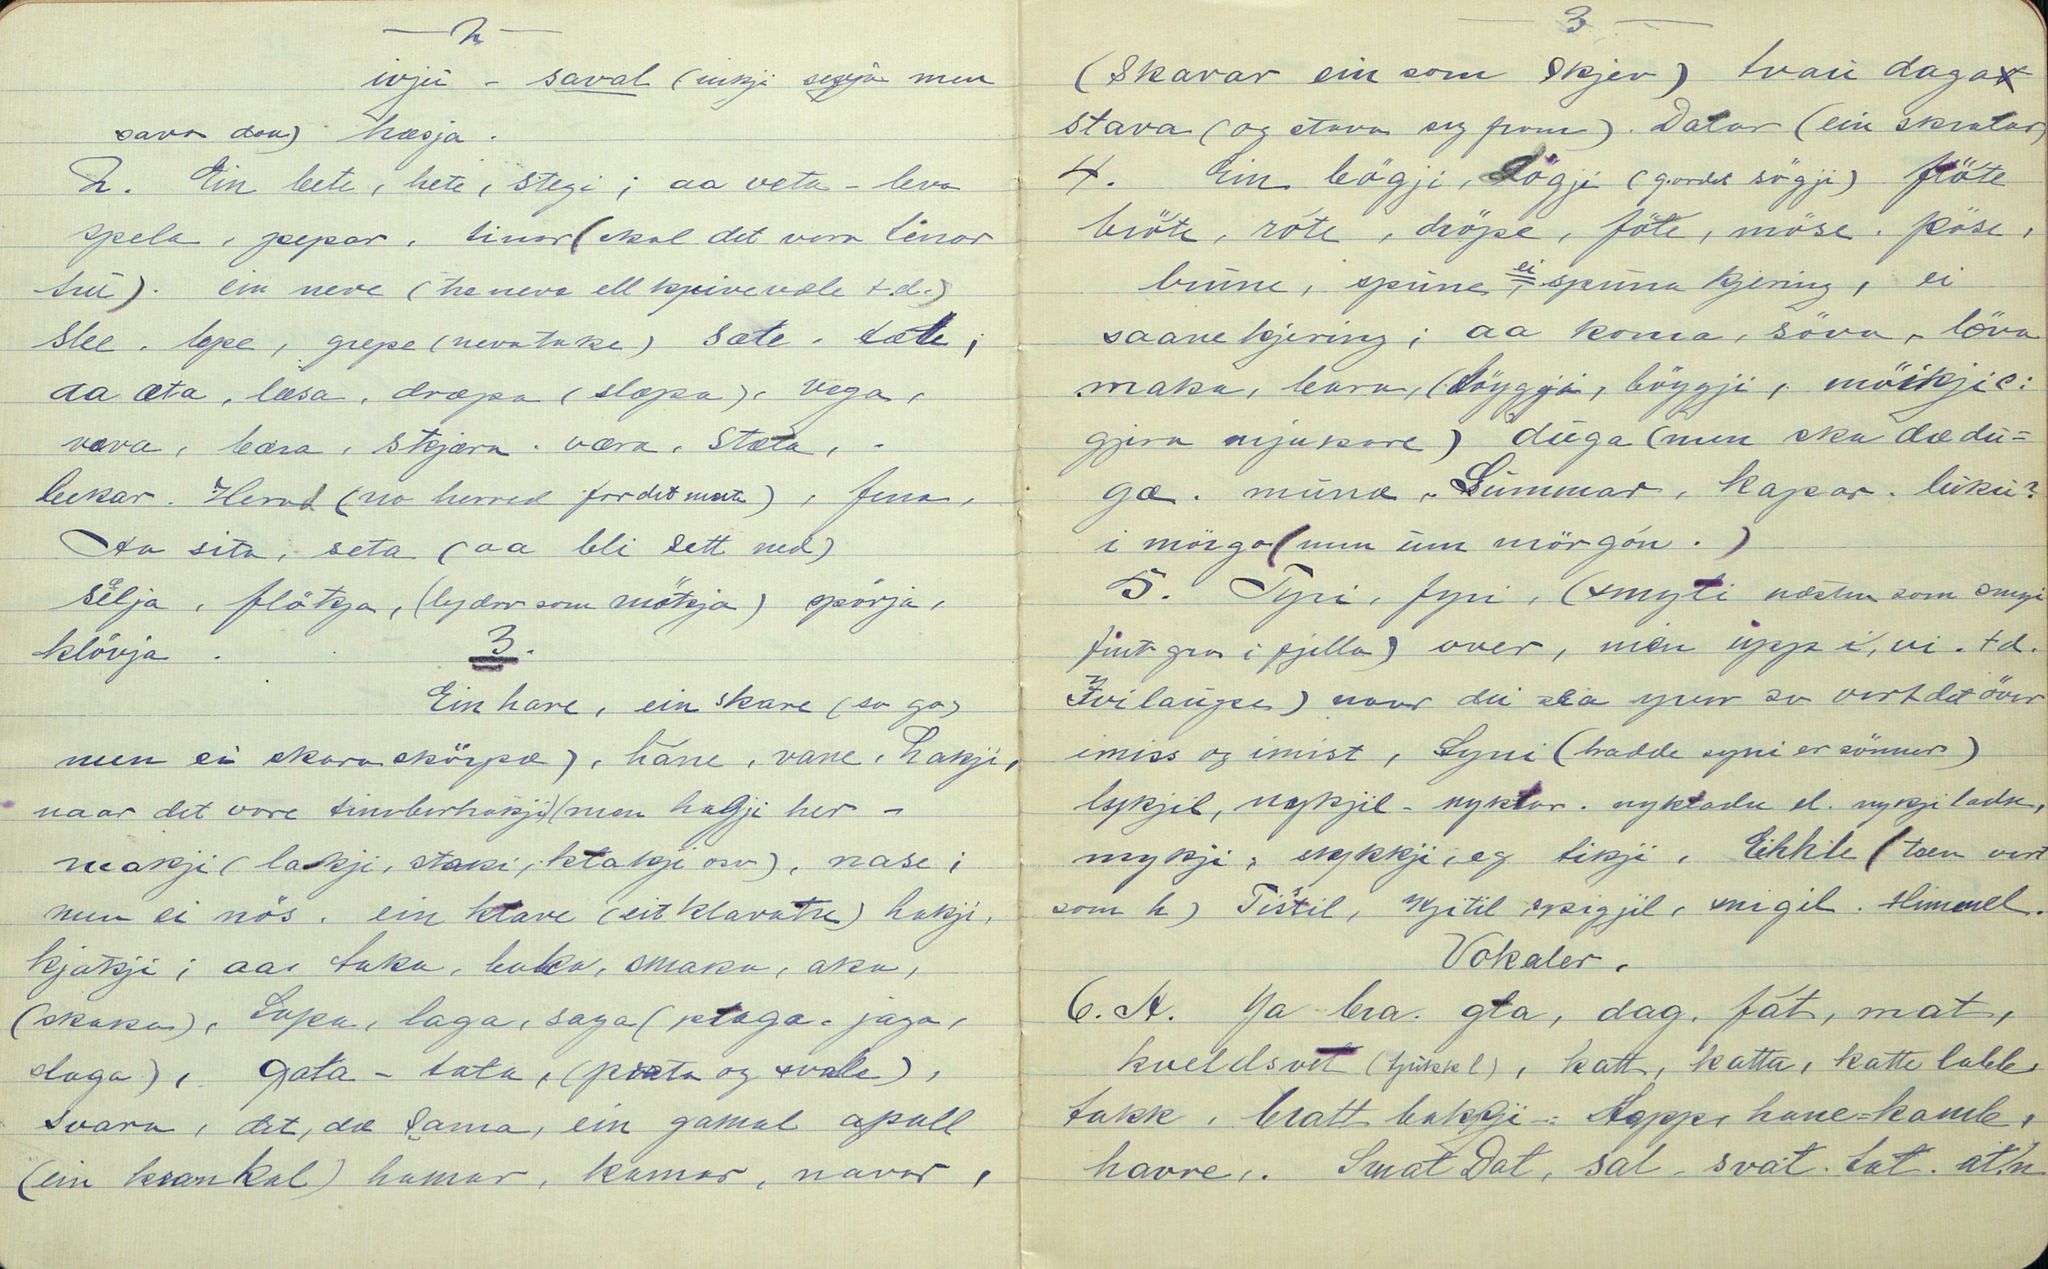 2
ivjú - saval (inkji segja men
sava daa) hæsja.
2. Ein bete, hete, stegi; aa veta - leva
spela, pepar, tinar (skal det vera tenar
trú). ein neve (ha neva ell knivevæle t.d.)
slee. lepe, grepe (nevatake) sæte. tæle;
aa æta, læsa, dræpa (slæpa), vega,
væva, bæra, skjæra. væra, stæla, -
bekar. Herad (no herred for det meste), fena,
Aa sita, seta (aa bli sett ned)
selja, flötja, (lyder som mötja) spörja,
klövja. 3.
Ein hare, ein skare (so ga)
men ei skara skörpæ), háne, vane, hakji,
naar det vore timberhakji) (men hakji her -
nakji (lakji, staki, klakji osv), nase;
men ei nös. ein klave (eit klavatre) hakji,
kjakji; aa, taka, baka, smaka, aka,
(skaka), Lapa, laga, saga (plaga - jaga,
slaga), gata - tata, (prata og svala),
svara, det, dæ sama, ein gamal apall
(ein krankal) hamar, kamar, navar,
3
(skavar ein som skjev) traú dagar
stava (og stava seg fram). Datar (ein skratar)
4. Ein bögji, Lögji (gardet sögji) flöte
bröte, röte, dröpe, föte, möse. pöse,
brúne, spúne, ei spúna kjering, ei
saane kjering; aa koma, söva, löva
maka, bara, (Löyggja, böyggji, möikji c:
gjera mjukare) dúga (men ska dædú=
gæ. múnæ, Súmmar, kapar. lúkú?
i mörgo (men úm mörgón.)
5. Tyri, fyri, (smyli næsten som smyi
fint gras i fjella) over, men úpp i, vi. td.
Yvilaúpe) naar dú sea yver so vert det över
imiss og imist, Syni (hadde syni er sönner)
lykjil, nykjil - nyklar. nykladu el. nykjiladu,
mykji, stykkji, eg likji, Eikkle (tæn vert
som h) Tistil, Kjitil, spigjil, snigil. Himmel.
Vokaler.
6. A. Ja bra. gla, dag, fát, mat,
kveldsvet (tjúkk l), katt, katta, katte labbe
takk, bratt bakkji - Kopp, hane=kamb,
havre,. Smat Dat, sal - svat. tat. at'n